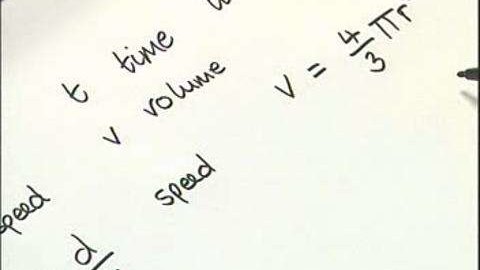 t time
v volume
V = 4/3 πr
speed
speed
d